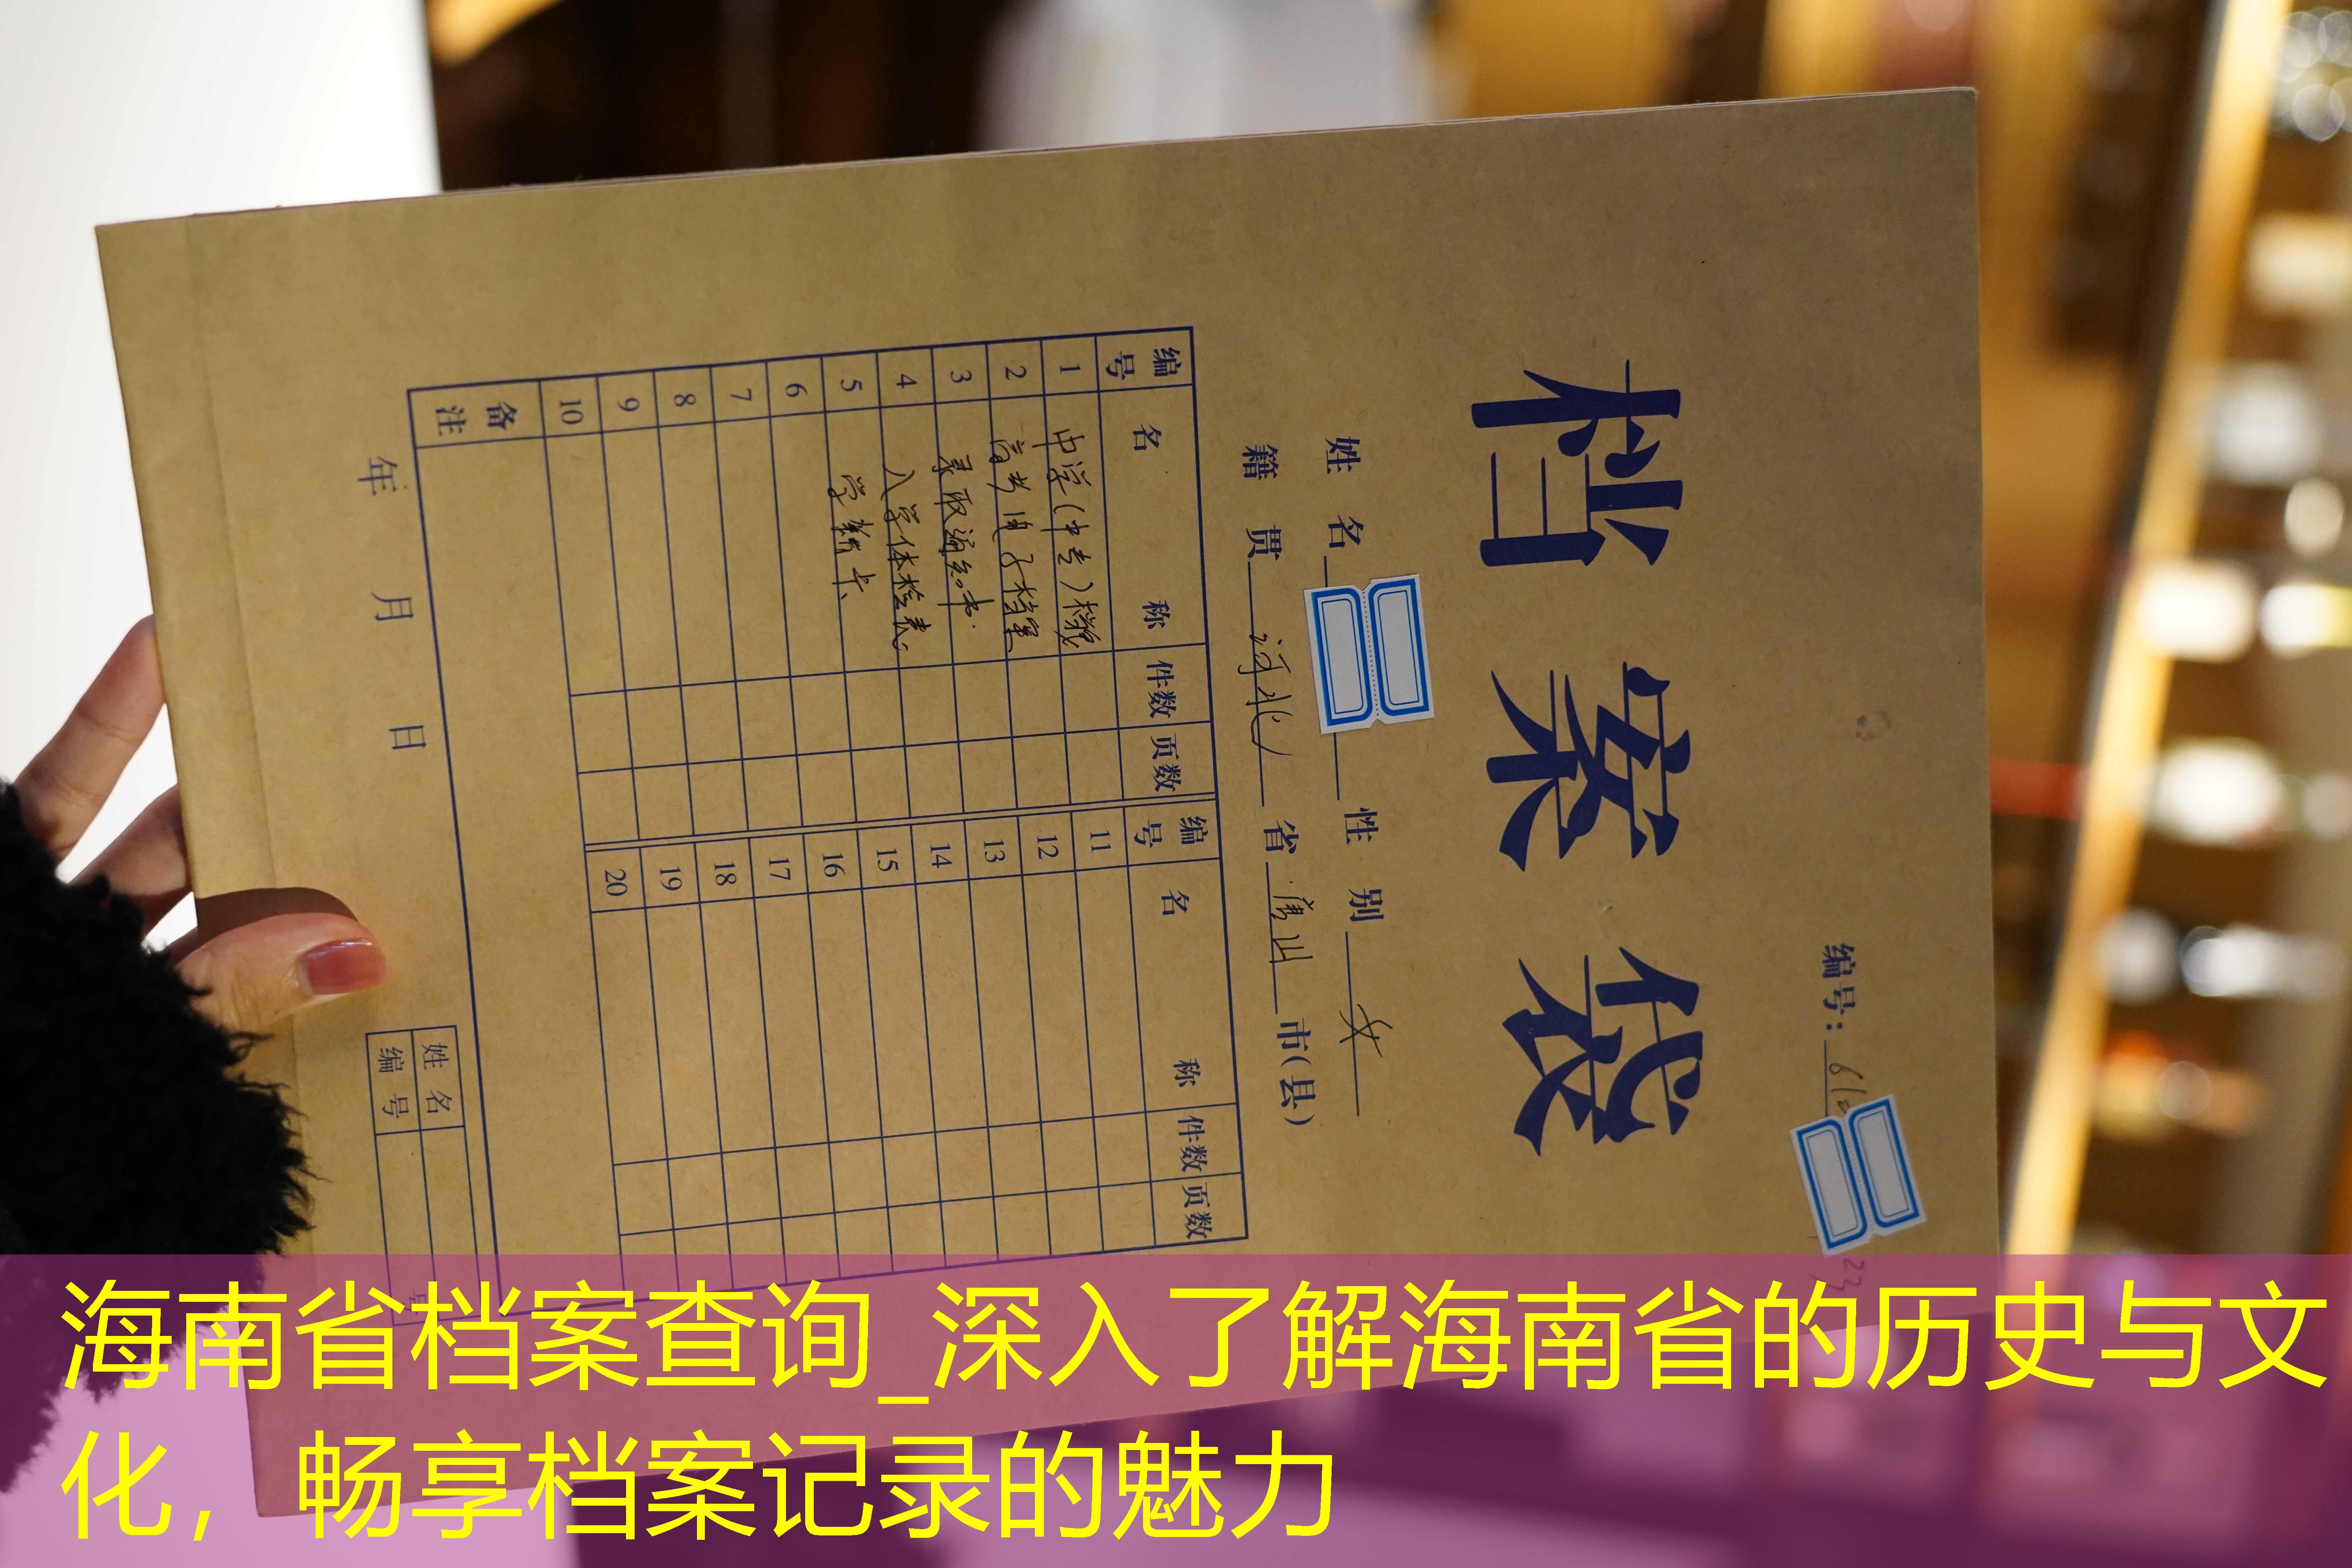 编号：
档案袋
姓名 性别 女
籍贯 河北 省 唐山 市(县)
编号 名称 件数 页数 编号 名称 件数 页数
1 中学(中专)档案 11
2 高考电子档案 12
3 录取通知书. 13
4 入学体检表. 14
5 学籍卡. 15
6 16
7 17
8 18
9 19
10 20
备注
年 月 日
姓名
编号 号
海南省档案查询_深入了解海南省的历史与文
化，畅享档案记录的魅力